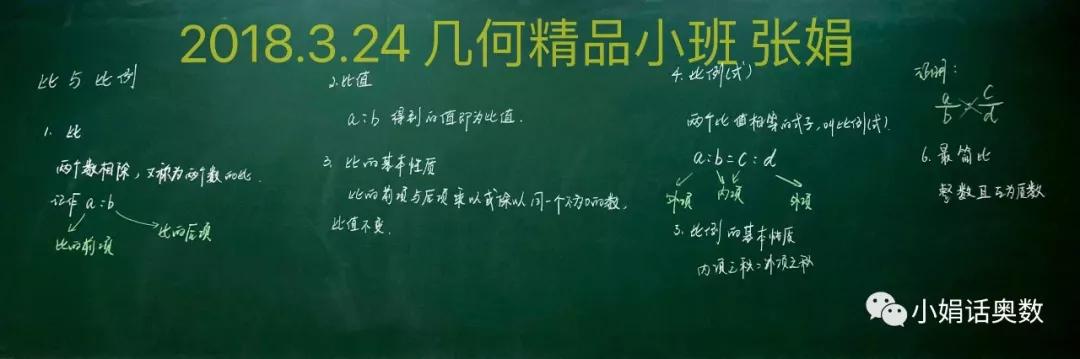 2018.3.24 几何精品小班 张娟
比与比例
1. 比
两个数相除，又称为两个数的比.
记作 a:b
比的前项
比的后项
2.比值
a:b 得到的值即为比值.
3. 比的基本性质
比的前项与后项乘以或除以同一个不为0的数,
比值不变.
4. 比例(式)
两个比值相等的式子,叫比例(式).
a:b=c:d
外项
内项
外项
5. 比例的基本性质
内项之积=外项之积
证明:
a/b c/d
6. 最简比
整数且互为质数
小娟话奥数